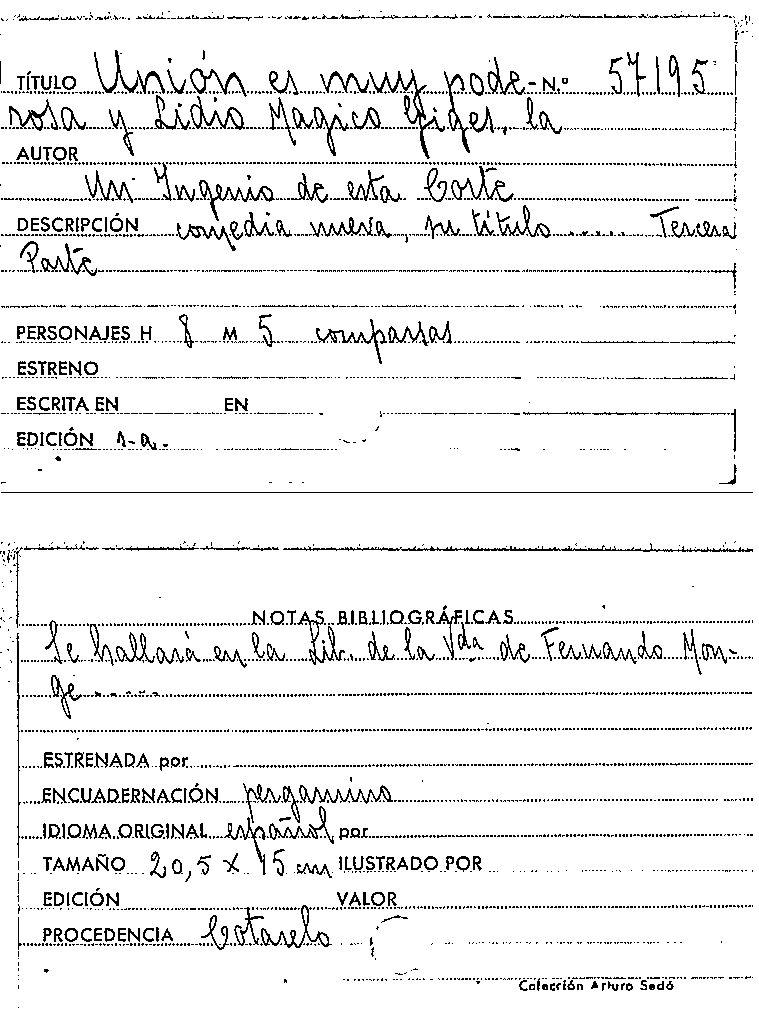 TÍTULO Unión es muy pode- N.º 57195
rosa y Lidio Magico Giges, la
AUTOR
Un Ingenio de esta Corte
DESCRIPCIÓN comedia nueva, su título ..... Tercera
Parte
PERSONAJES H 8 M 5 comparsas
ESTRENO
ESCRITA EN EN
EDICIÓN s.a.
NOTAS BIBLIOGRÁFICAS
Se hallará en la Lib. de la Vda de Fernando Mon-
ge .....
ESTRENADA por
ENCUADERNACIÓN pergamino
IDIOMA ORIGINAL español por
TAMAÑO 20,5 x 15 cm ILUSTRADO POR
EDICIÓN VALOR
PROCEDENCIA Cotarelo
Colección Arturo Sedó